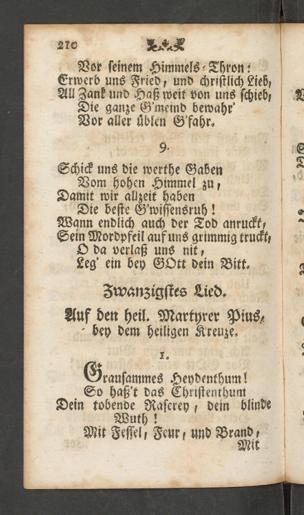 210
Vor seinem Himmels-Thron:
Erwerb uns Fried, und christlich Lieb,
All Zank und Haß weit von uns schieb,
Die ganze G'meind bewahr'
Vor aller üblen G'fahr.
9.
Schick uns die werthe Gaben
Vom hohen Himmel zu,
Damit wir allzeit haben
Die beste G'wissensruh!
Wann endlich auch der Tod anruckt,
Sein Mordpfeil auf uns grimmig truckt,
O da verlaß uns nit,
Leg' ein bey GOtt dein Bitt.
Zwanzigstes Lied.
Auf den heil. Martyrer Pius,
bey dem heiligen Kreuze.
1.
Grausammes Heydenthum!
So haß't das Christenthum
Dein tobende Raserey, dein blinde
Wuth!
Mit Fessel, Feur, und Brand,
Mit